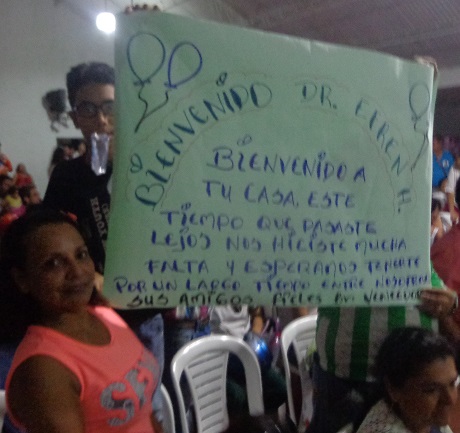 BIENVENIDO DR. EFREN H.
BIENVENIDO A
TU CASA, ESTE
TIEMPO QUE PASASTE
LEJOS NOS HICISTE MUCHA
FALTA Y ESPERAMOS TENERTE
POR UN LARGO TIEMPO ENTRE NOSOTROS
SUS AMIGOS FIELES